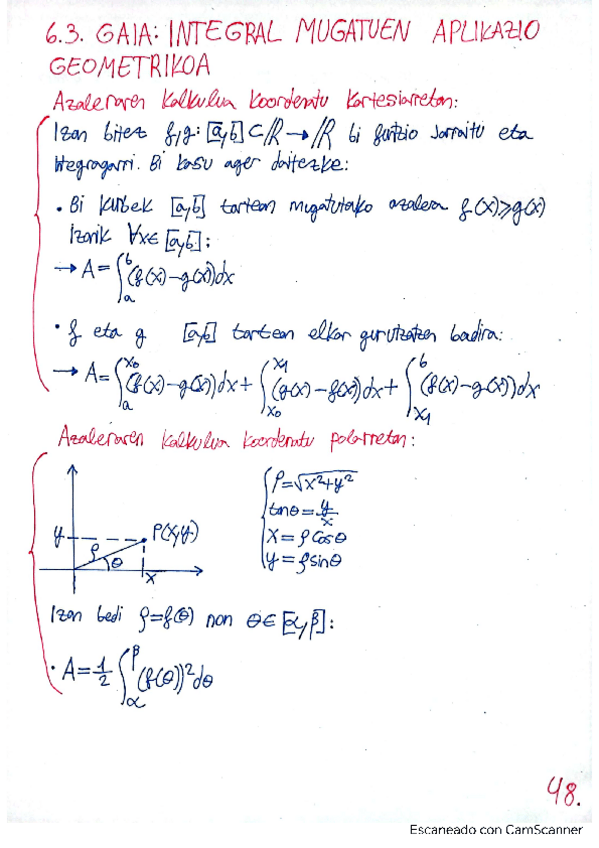 6.3. GAIA: INTEGRAL MUGATUEN APLIKAZIO
GEOMETRIKOA
Azaleraren kalkulua koordenatu kartesiarretan:
Izan bitez f,g: [a,b] ⊂ ℝ → ℝ bi funtzio jarraitu eta
integragarri. Bi kasu ager daitezke:
• Bi kurbek [a,b] tartean mugatutako azalera f(x) ≥ g(x)
izanik ∀x ∈ [a,b]:
→ A = ∫_a^b (f(x) - g(x)) dx
• f eta g [a,b] tartean elkar gurutzatzen badira:
→ A = ∫_a^{x₀} (f(x) - g(x)) dx + ∫_{x₀}^{x₁} (g(x) - f(x)) dx + ∫_{x₁}^b (f(x) - g(x)) dx
Azaleraren kalkulua koordenatu polarretan:
y P(x,y)
ρ θ
x
ρ = √(x² + y²)
tanθ = y/x
x = ρ cosθ
y = ρ sinθ
Izan bedi ρ = f(θ) non θ ∈ [α,β]:
• A = 1/2 ∫_α^β (f(θ))² dθ
48.
Escaneado con CamScanner